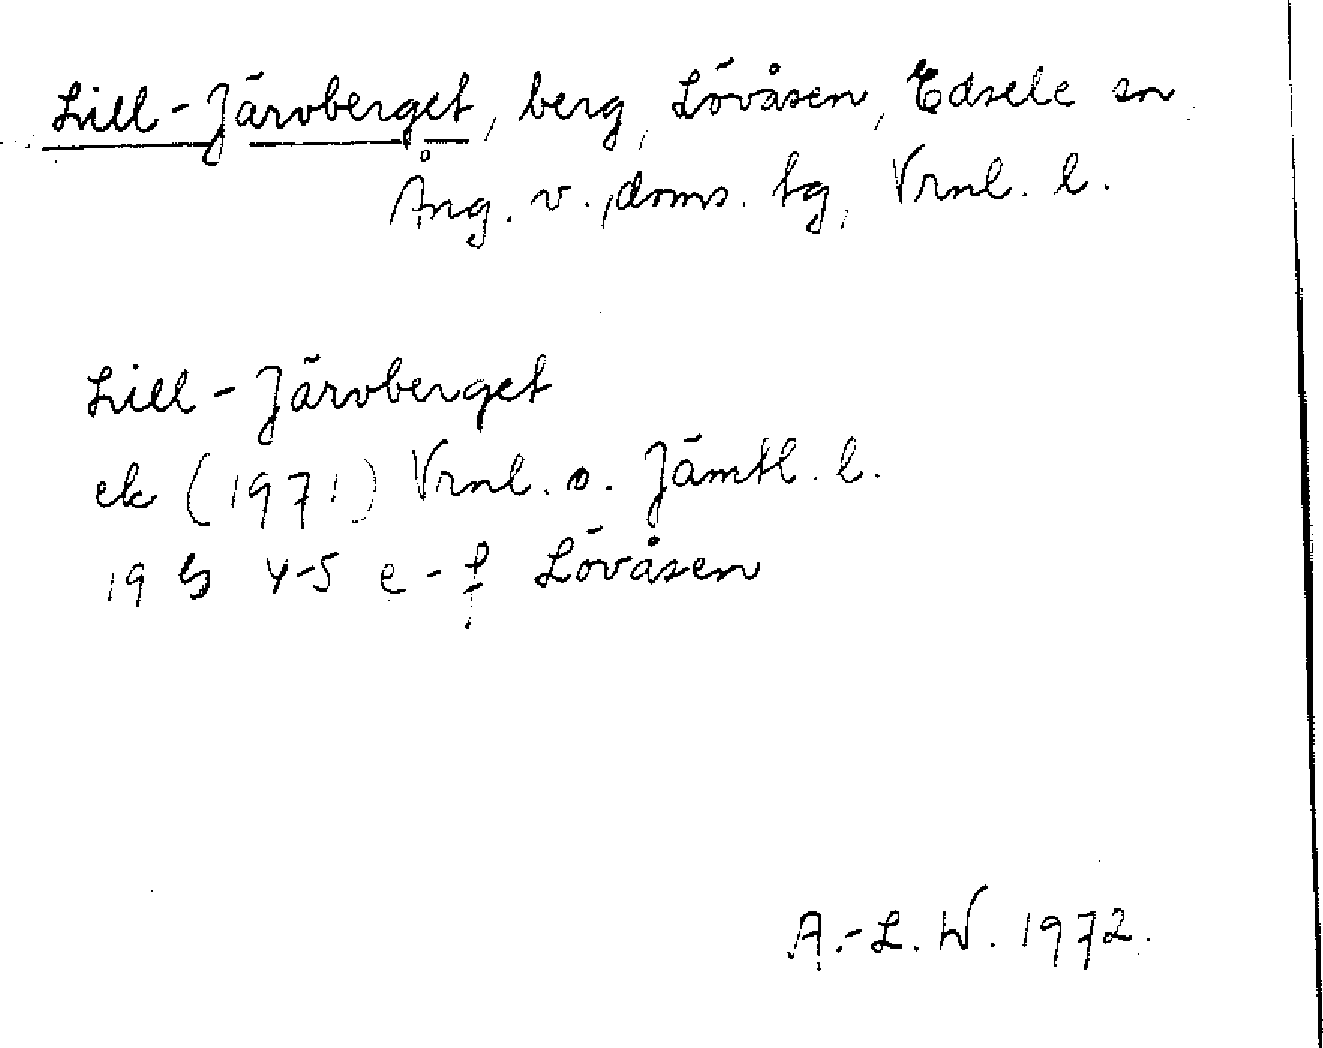 Lill-Järvberget, berg, Lövåsen, Edsele sn
Ång. v., doms. tg, Vrnl. l.
Lill-Järvberget
ek (1971) Vrnl. o. Jämtl. l.
19 G 4-5 e-f Lövåsen
A.-L. W. 1972.